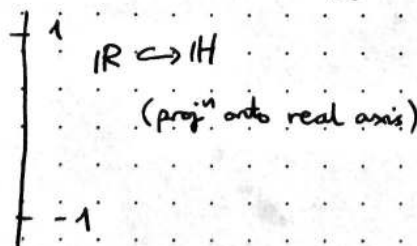 1
ℝ ↪ ℍ
(projⁿ onto real axis)
-1